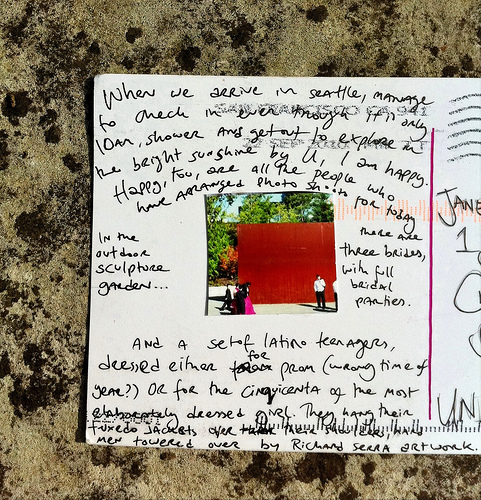 When we arrive in Seattle, manage
to check in even though it is only
10am, shower and get out to explore in
the bright sunshine by U, I am happy.
Happy, too, are all the people who
have arranged photo shoots for today
In the
outdoor
sculpture
garden...
there are
three brides,
with full
bridal
parties.
And a set of latino teenagers,
dressed either for prom (wrong time of
year?) or for the Cinquicenta of the most
elaborately dressed girl. They hang their
tuxedo jackets over their shoulders,
men towered over by Richard Serra artwork.
JANE
1
UN